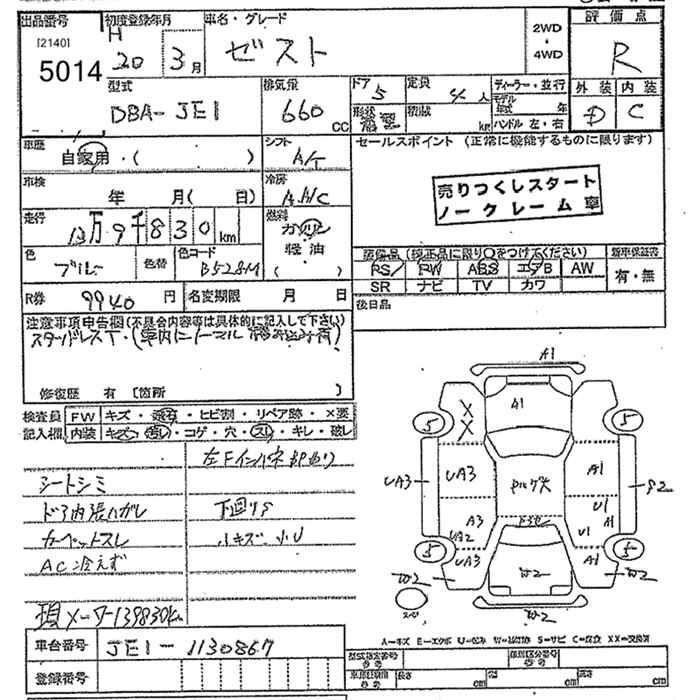 出品番号 初度登録年月 車名・グレード 評価点
[2140] H 2WD
5014 20 3月 ゼスト ・ R
4WD
型式 排気量 ドア 定員 ディーラー・並行 外装 内装
DBA-JE1 660 CC 5 4人 モデル年式 年 D C
形状 積載 kg ハンドル 左・右
車歴 シフト セールスポイント (正常に機能するものに限ります)
自家用・( ) A/T
車検 冷房 売りつくしスタート
年 月( 日) A.A/C ノークレーム車
走行 燃料
13万9千830km ガソリン
軽油
色 色替 色コード ( )
ブルー B528M
装備品 (純正品に限り○をつけてください) 新車保証書
PS PW ABS エアB AW 有・無
SR ナビ TV カワ
R券 9940円 名変期限 月 日 後日品
注意事項申告欄(不具合内容等は具体的に記入して下さい)
スタッドレスT・(車内にノーマル積み込み有)
修復歴 有 〔箇所 〕
検査員 FW キズ・飛石・ヒビ割・リペア跡・×要
記入欄 内装 キズ・汚れ・コゲ・穴・スレ・キレ・破レ
左Fインパネ部曲り
シートシミ
ドア内張ハガレ 下回りサ
カーペットスレ 小キズ・小U
AC冷えず
現メーター139830km
車台番号 JE1-1130867
登録番号
A1
A1
XX
5 5
UA3 UA3 A1 P2
A3 U1 A1
UA2 U1
5 UA3 A1 5
W2 W2 W2
W2
A=キズ E=エクボ U=凹み W=補修跡 S=サビ C=腐食 XX=交換済
型式指定番号 類別区分番号
長さ cm 幅 cm 高さ cm